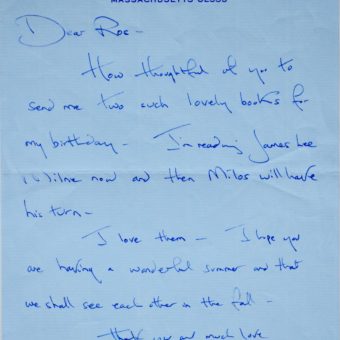 MASSACHUSETTS 02360
Dear Roe -
How thoughtful of you to
send me two such lovely books for
my birthday - I'm reading James Lee
Milne now and then Milos will have
his turn -
I love them - I hope you
are having a wonderful summer and that
we shall see each other in the fall -
Thank you and much love